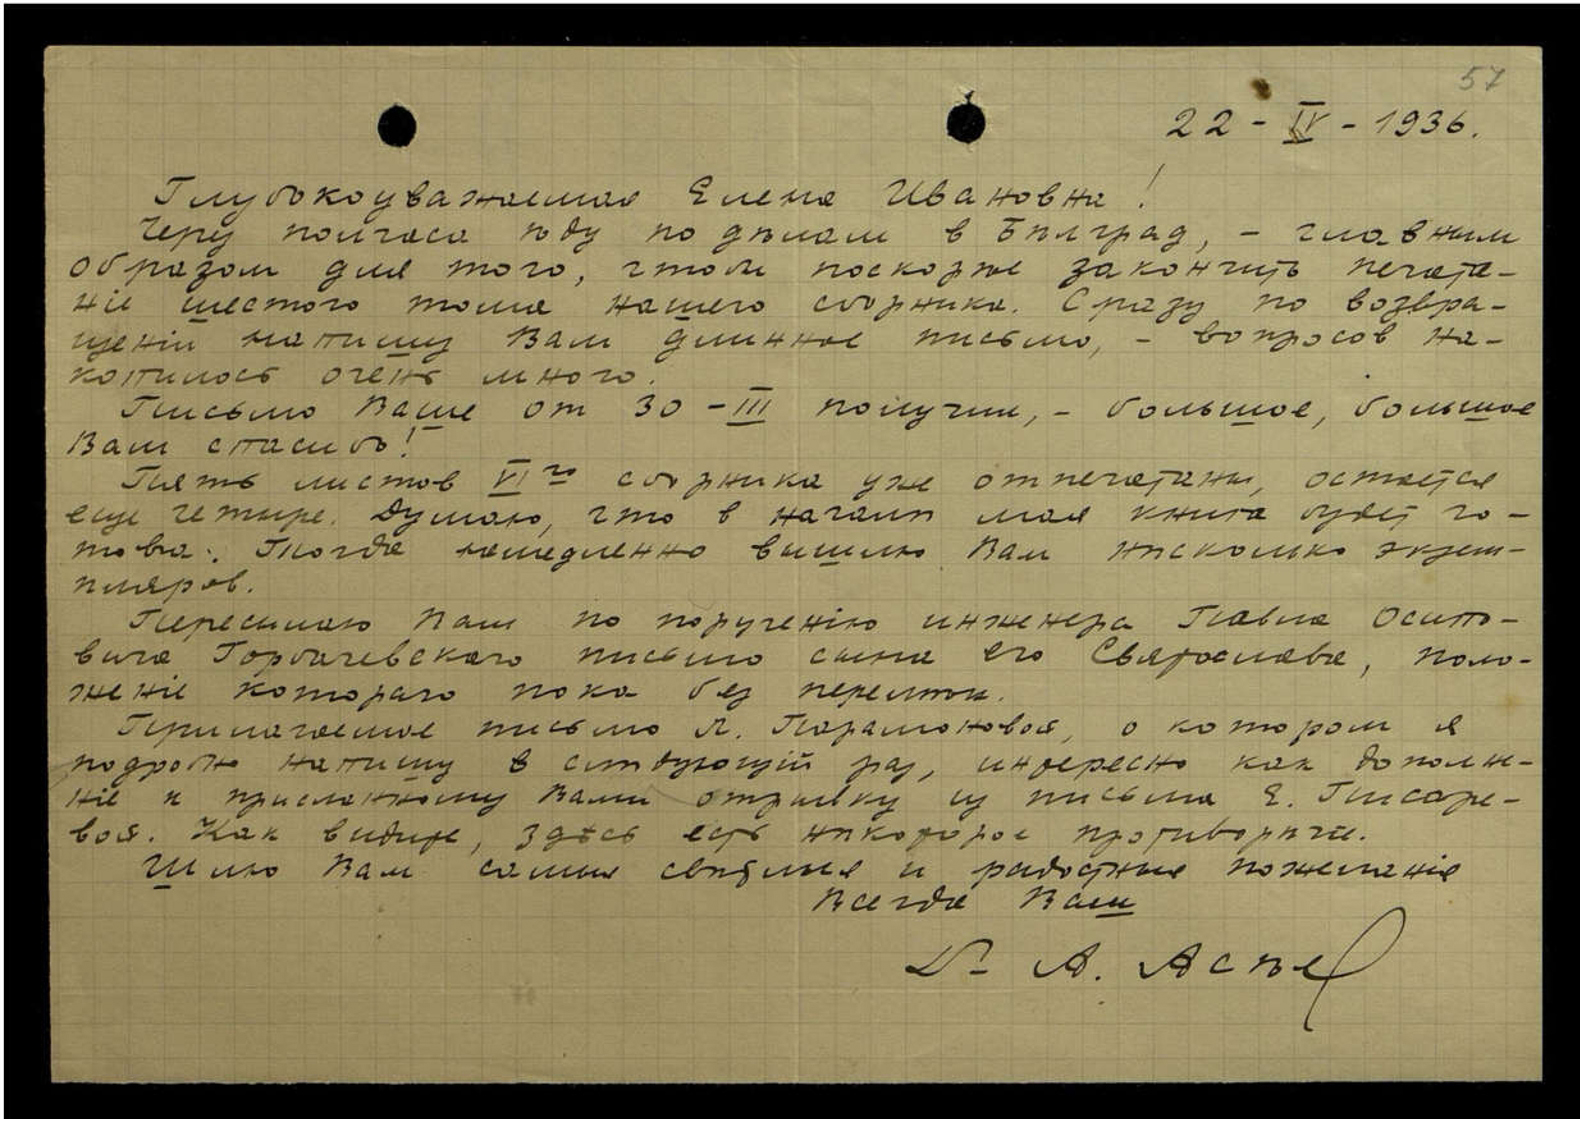 57
22 - IV - 1936.
Глубокоуважаемая Елена Ивановна!
Через полчаса ѣду по дѣлам в Бѣлград, - главным
образом для того, чтобы поскорѣе закончить печата-
ніе шестого тома нашего сборника. Сразу по возвра-
щеніи напишу Вам длинное письмо, - вопросов на-
копилось очень много.
Письмо Ваше от 30 - III получил, - большое, большое
Вам спасибо!
Пять листов VI го сборника уже отпечатаны, остается
еще четыре. Думаю, что в началѣ мая книга будет го-
това. Тогда немедленно вышлю Вам нѣсколько экзем-
пляров.
Пересылаю Вам по порученію инженера Павла Осипо-
вича Горбачевского письмо сына его Святослава, поло-
женіе котораго пока без перемѣн.
Прилагаемое письмо Л. Парамоновой, о котором я
подробно напишу в слѣдующій раз, интересно как дополне-
ніе к присланному Вами отрывку из письма Е. Писаре-
вой. Как видите, здѣсь есть нѣкоторое противорѣчіе.
Шлю Вам самыя свѣтлыя и радостныя пожеланія
Всегда Ваш
Dr А. Асѣев